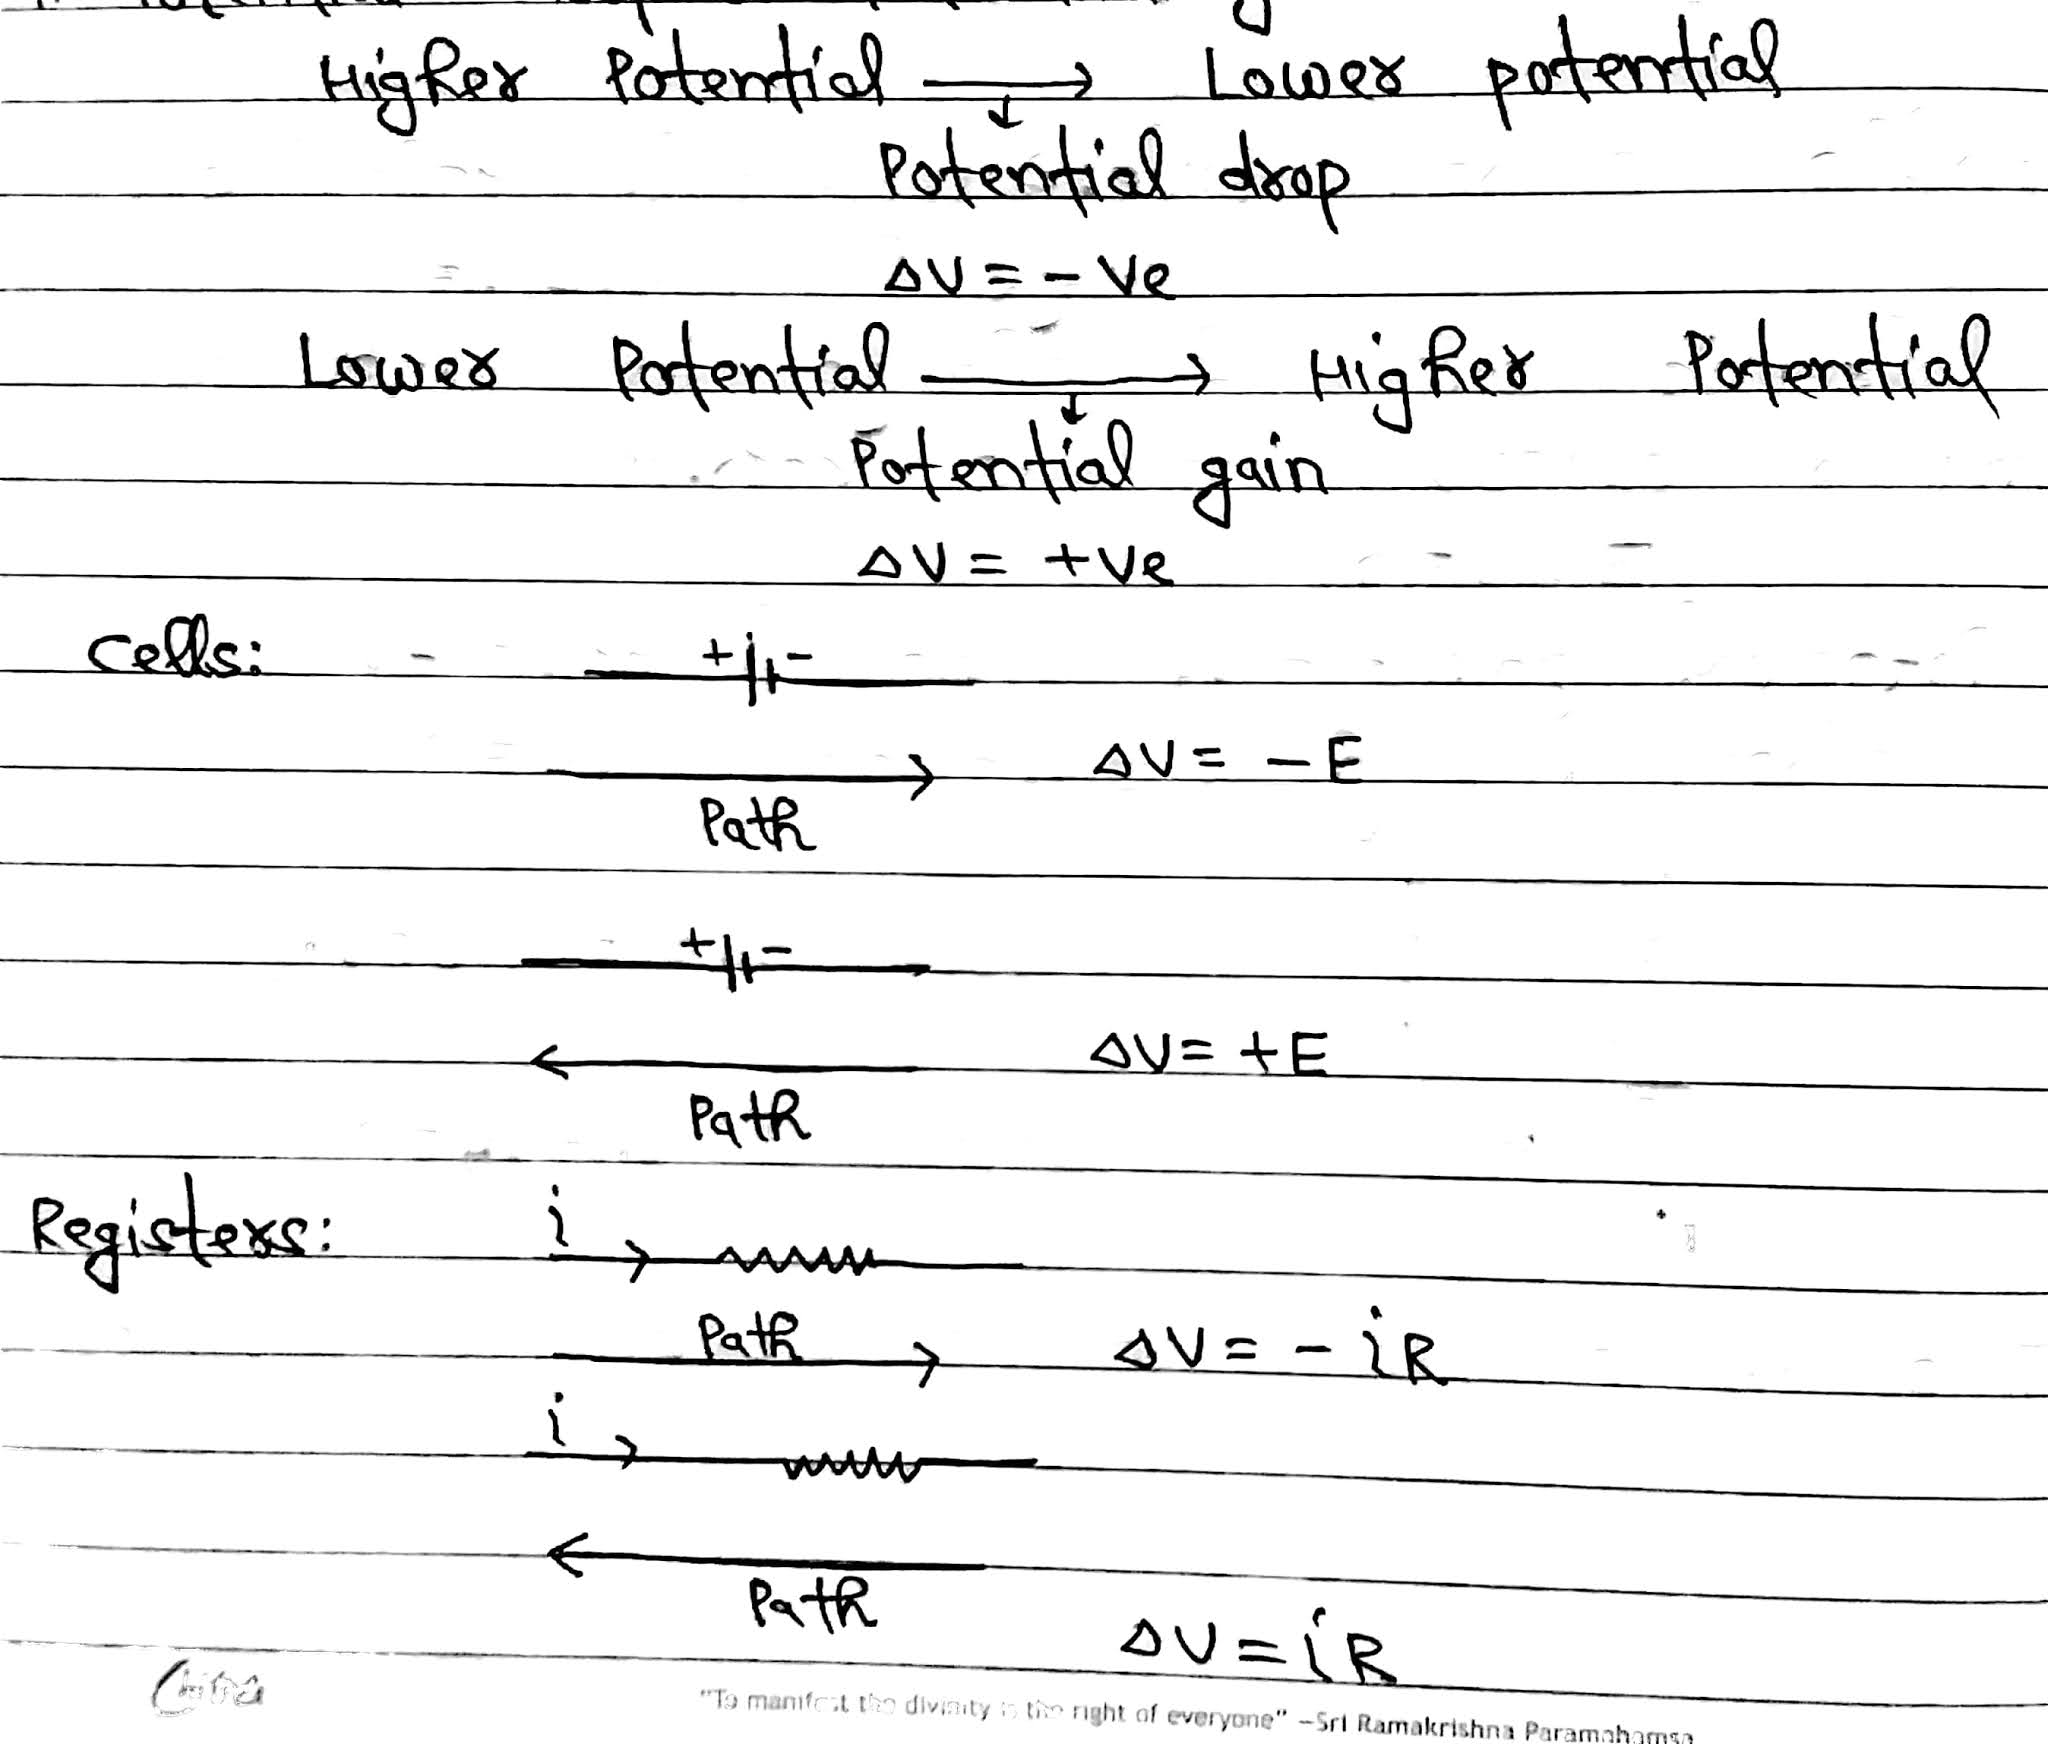 Higher Potential → Lower potential
↓
Potential drop
ΔV = - Ve
Lower Potential → Higher Potential
↓
Potential gain
ΔV = +Ve
Cells: + -
ΔV = - E
Path
+ -
ΔV = +E
Path
Registers: i
Path ΔV = - iR
i
Path
ΔV = iR
"To manifest the divinity is the right of everyone" -Sri Ramakrishna Paramahamsa